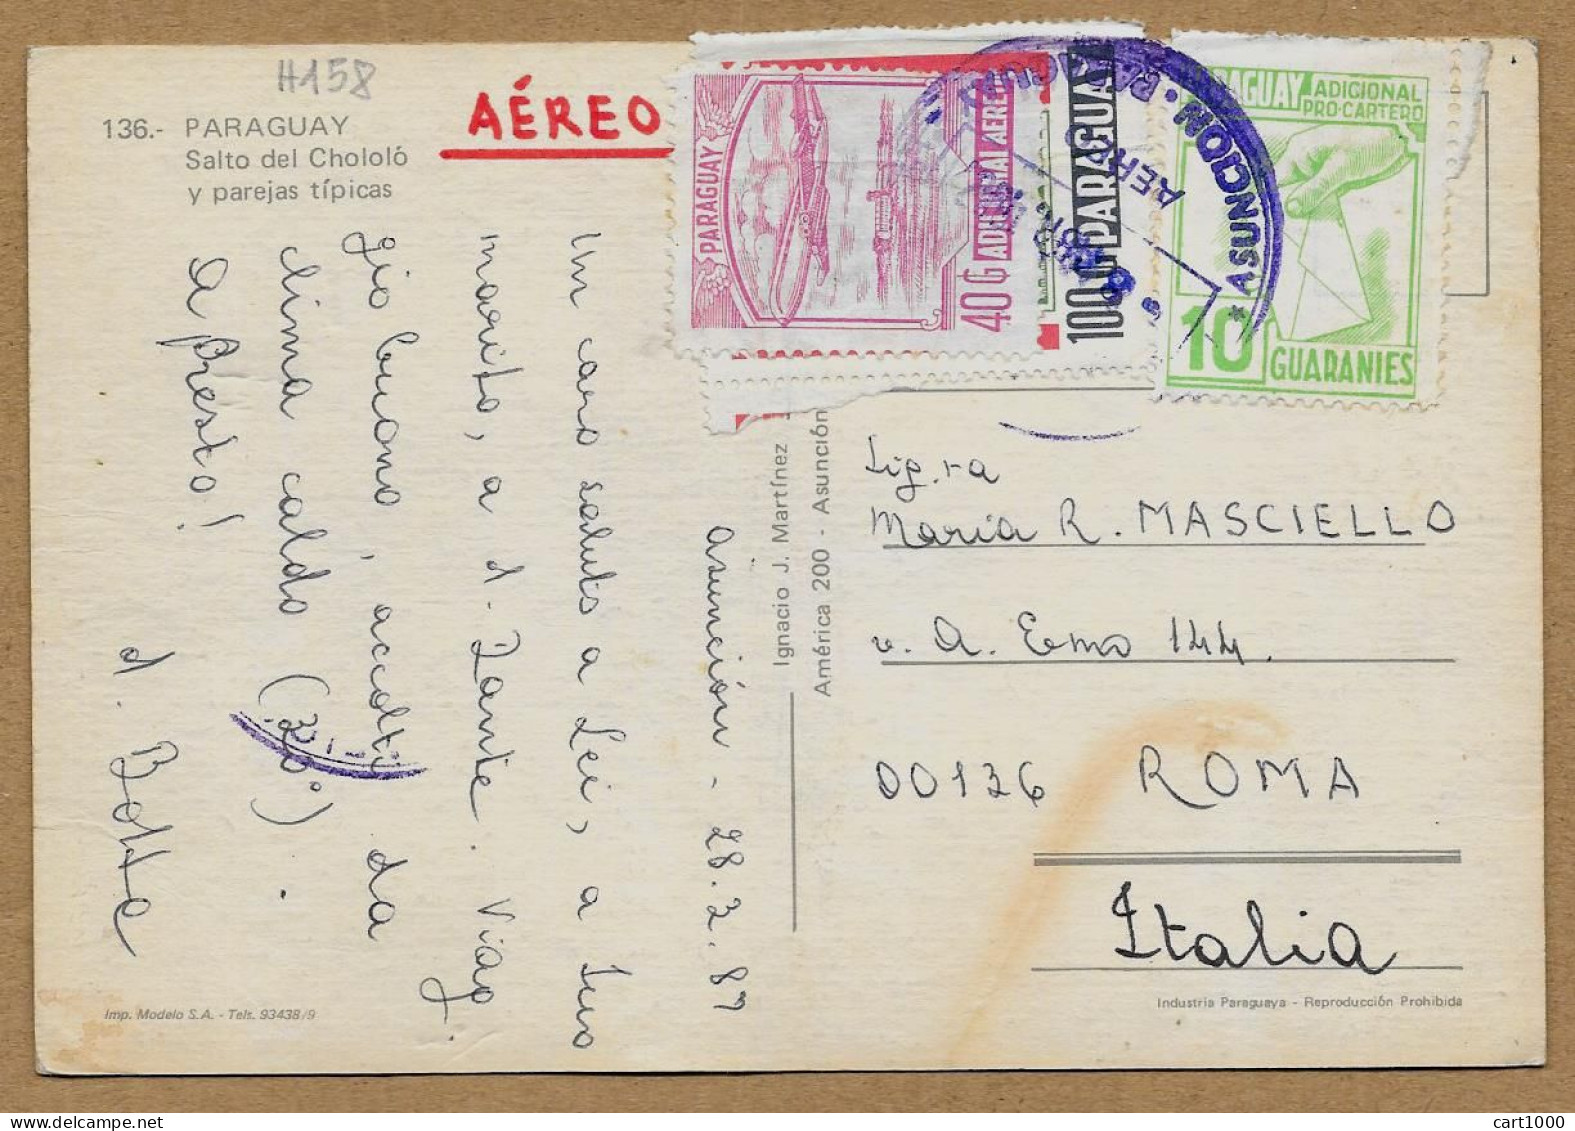 H158
136.- PARAGUAY
Salto del Chololó
y parejas típicas
AÉREO
PARAGUAY
40 ₲ ADICIONAL AEREO
100 ₲ PARAGUAY
PARAGUAY ADICIONAL
PRO-CARTERO
10
GUARANIES
* ASUNCION •
Asunción - 28.2.87
Un caro saluto a Lei, a Suo
marito, a d. Zante. Viag
gio buono, accolti da
clima caldo (320°).
A presto!
d. Botta
Ignacio J. Martínez
América 200 - Asunción
Sig.ra
Maria R. MASCIELLO
v. A. Emo 144.
00136 ROMA
Italia
Imp. Modelo S.A. - Tels. 93438/9
Industria Paraguaya - Reproducción Prohibida
cart1000